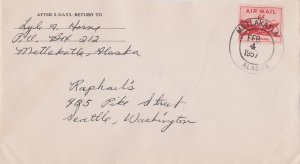 AFTER 5 DAYS, RETURN TO
Lyle A
P.O. Box 212
Metlakatla, Alaska
AIR MAIL
6¢
METLAKATLA
FEB
4
1957
ALASKA
Raphael's
425 Pike Street
Seattle, Washington